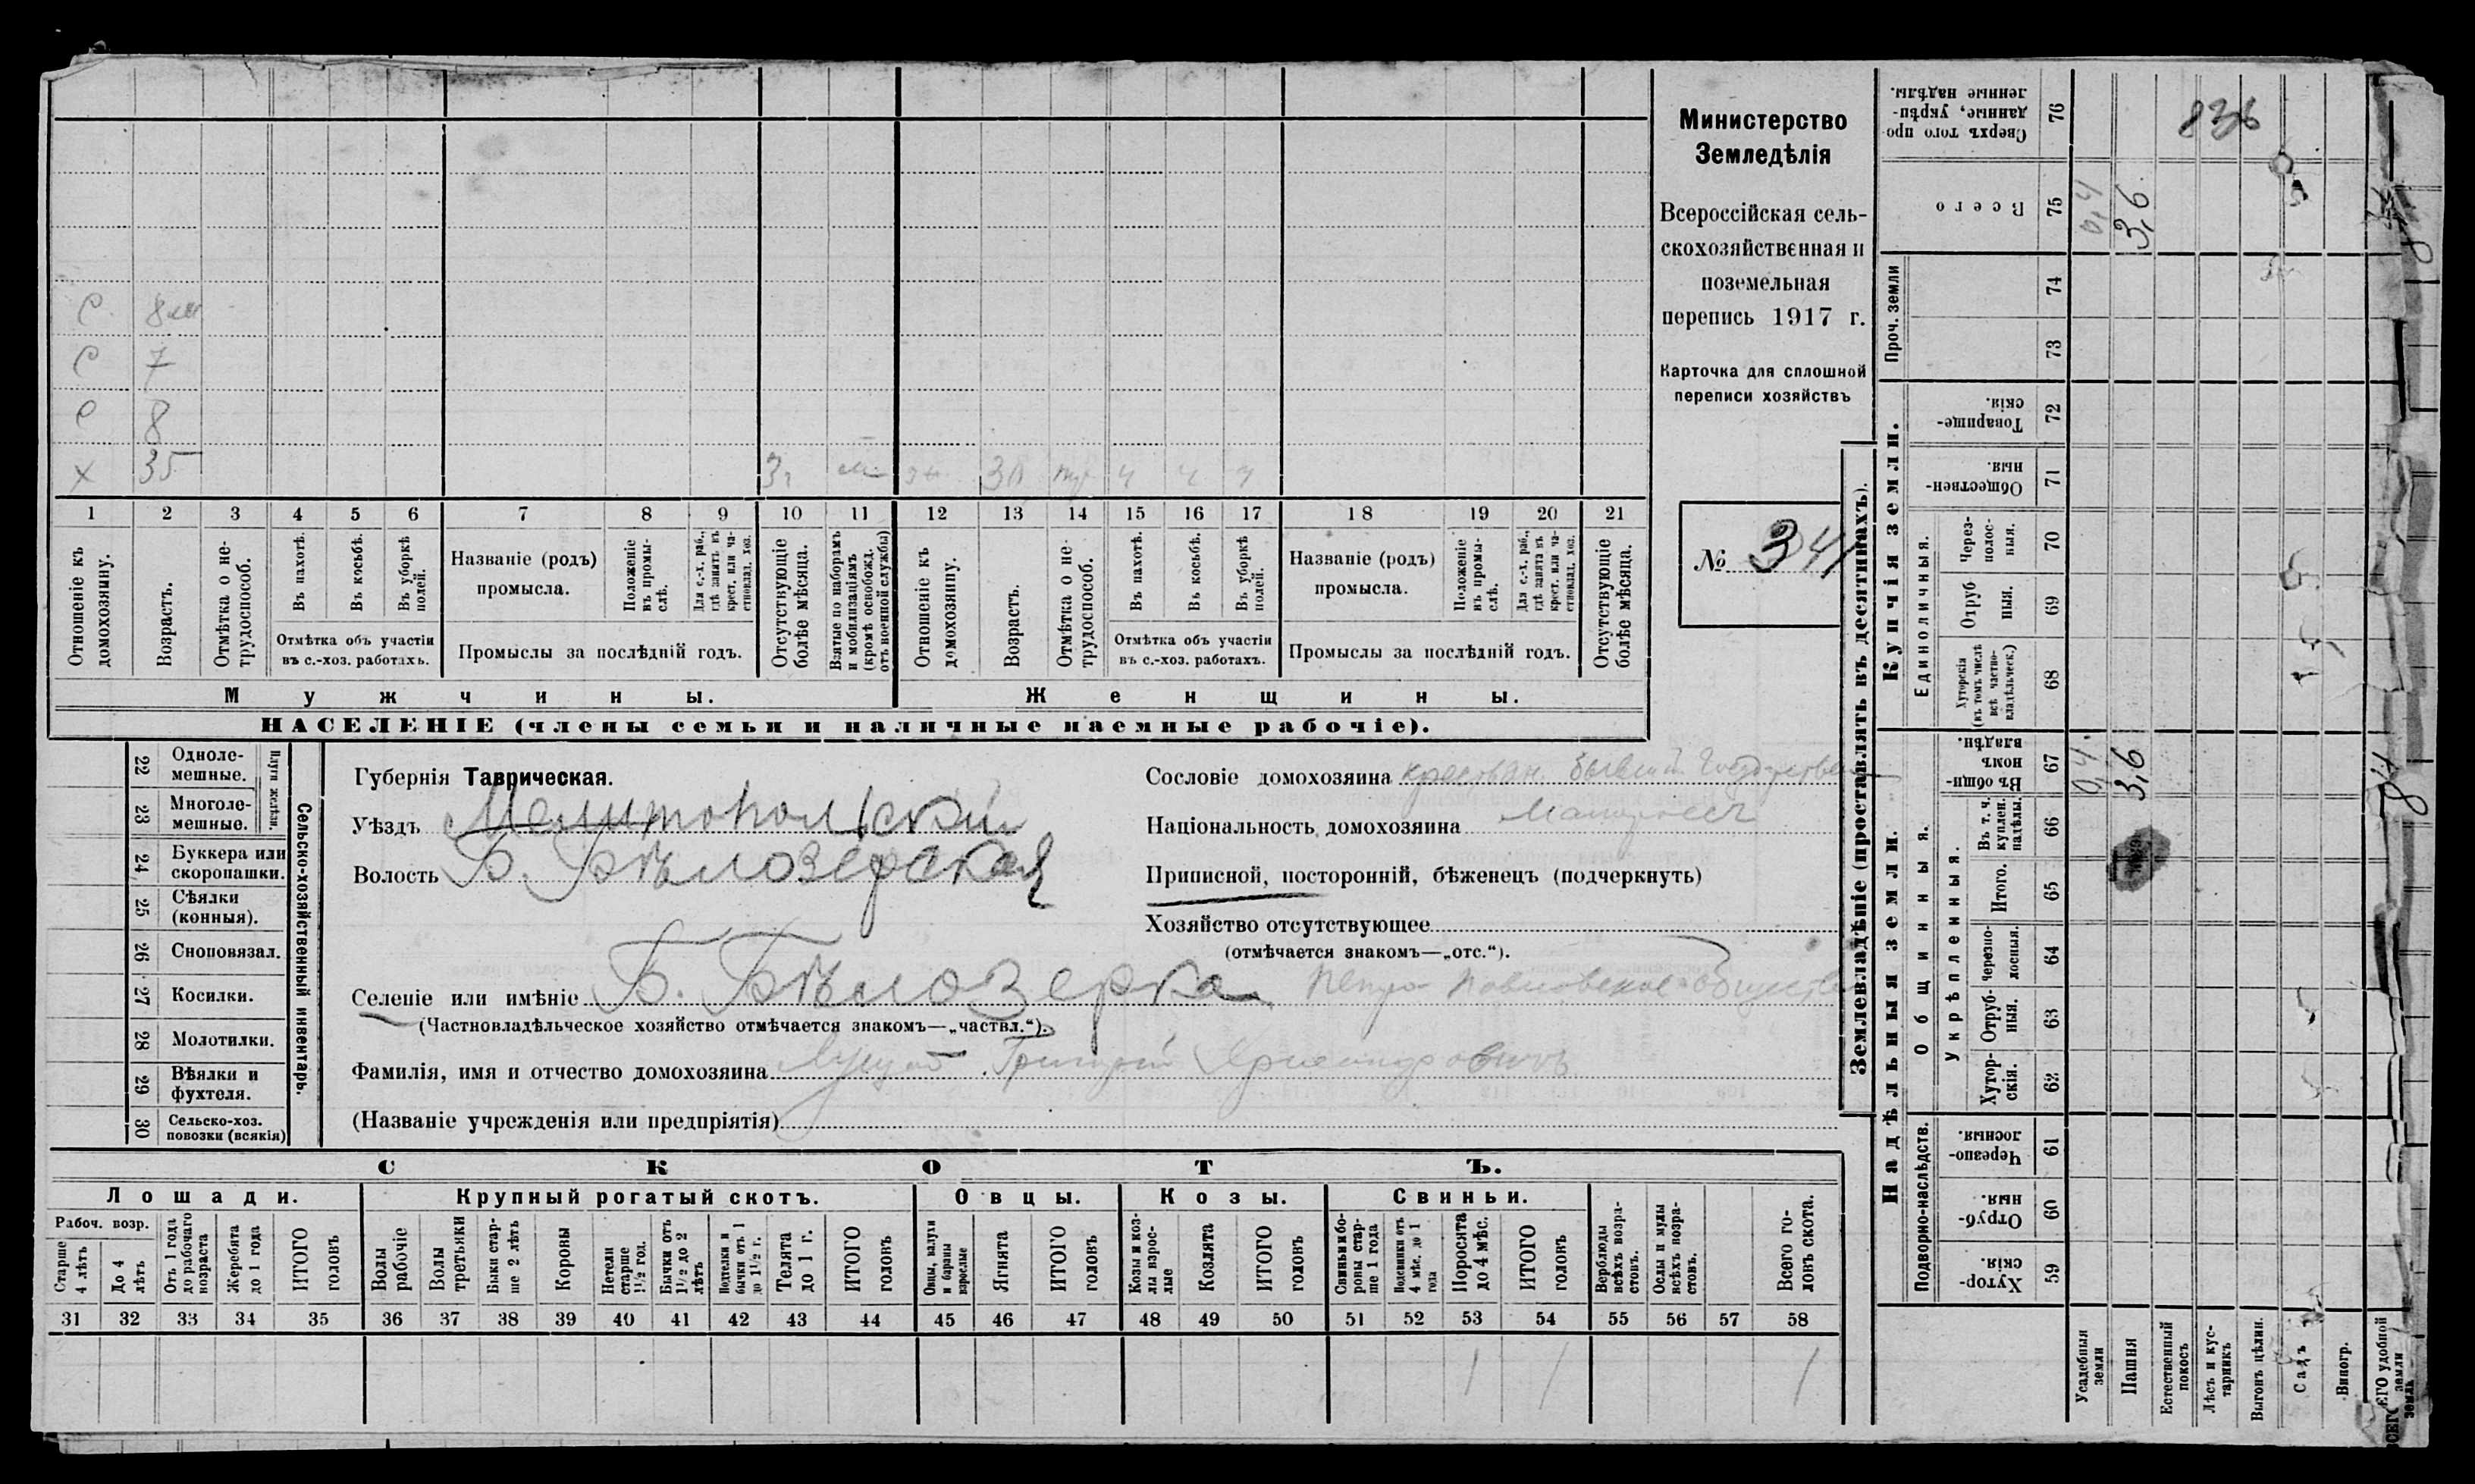 Министерство
Земледѣлія
Всероссійская сель-
скохозяйственная и
поземельная
перепись 1917 г.
Карточка для сплошной
переписи хозяйствъ
№ 341
С 8 м
С 7
С 8
Х 35 3 г ж 30 ч ч ч
1 2 3 4 5 6 7 8 9 10 11 12 13 14 15 16 17 18 19 20 21
Отношеніе къ домохозяину.
Возрастъ.
Отмѣтка о не-трудоспособ.
Въ пахотѣ.
Въ косьбѣ.
Въ уборкѣ полей.
Отмѣтка объ участіи
въ с.-хоз. работахъ.
Названіе (родъ)
промысла.
Положеніе въ промы-слѣ.
Для с.-х. раб., гдѣ занятъ въ крест. или ча-стновлад. хоз.
Промыслы за послѣдній годъ.
Отсутствующіе болѣе мѣсяца.
Взятые по наборамъ и мобилизаціямъ (кромѣ освобожд. отъ военной службы)
Отношеніе къ домохозяину.
Возрастъ.
Отмѣтка о не-трудоспособ.
Въ пахотѣ.
Въ косьбѣ.
Въ уборкѣ полей.
Отмѣтка объ участіи
въ с.-хоз. работахъ.
Названіе (родъ)
промысла.
Положеніе въ промы-слѣ.
Для с.-х. раб., гдѣ занятъ въ крест. или ча-стновлад. хоз.
Промыслы за послѣдній годъ.
Отсутствующіе болѣе мѣсяца.
Мужчины.
Женщины.
НАСЕЛЕНІЕ (члены семьи и наличные наемные рабочіе).
Сельско-хозяйственный инвентарь.
Плуги желѣзн.
22 Одноле-мешные.
23 Многоле-мешные.
24 Буккера или скоропашки.
25 Сѣялки (конныя).
26 Сноповязал.
27 Косилки.
28 Молотилки.
29 Вѣялки и фухтеля.
30 Сельско-хоз. повозки (всякія)
Губернія Таврическая.
Уѣздъ Мелитопольскій
Волость Б. Бѣлозерская
Селеніе или имѣніе Б. Бѣлозерка Петро-Павловское общество
(Частновладѣльческое хозяйство отмѣчается знакомъ—„частвл.“).
Фамилія, имя и отчество домохозяина Григорій
(Названіе учрежденія или предпріятія)
Сословіе домохозяина крестьян. бывшій Государствен
Національность домохозяина Малоросс
Приписной, посторонній, бѣженецъ (подчеркнуть)
Хозяйство отсутствующее
(отмѣчается знакомъ—„отс.“).
СКОТЪ.
Лошади.
Крупный рогатый скотъ.
Овцы.
Козы.
Свиньи.
Рабоч. возр.
Старше 4 лѣтъ
До 4 лѣтъ
Отъ 1 года до рабочаго возраста
Жеребята до 1 года
ИТОГО головъ
Волы рабочіе
Волы третьяки
Быки стар-ше 2 лѣтъ
Коровы
Нетели старше 1½ год.
Бычки отъ 1½ до 2 лѣтъ
Подтелки и бычки отъ 1 до 1½ г.
Телята до 1 г.
ИТОГО головъ
Овцы, валухи и бараны взрослые
Ягнята
ИТОГО головъ
Козы и коз-лы взрос-лые
Козлята
ИТОГО головъ
Свиньи и бо-ровы стар-ше 1 года
Подсвинки отъ 4 мѣс. до 1 года
Поросята до 4 мѣс.
ИТОГО головъ
Верблюды всѣхъ возра-стовъ.
Ослы и мулы всѣхъ возра-стовъ.
Всего го-ловъ скота.
31 32 33 34 35 36 37 38 39 40 41 42 43 44 45 46 47 48 49 50 51 52 53 54 55 56 57 58
1 1 1
Землевладѣніе (проставлять въ десятинахъ).
Надѣльныя земли.
Купчія земли.
Проч. земли
Подворно-наслѣдств.
Общинныя.
Укрѣпленныя.
Единоличныя.
Сверхъ того про-данные, укрѣп-ленные надѣлы. 76 836
Всего 75 0,4 3,6
74
73
Товарище-скія. 72
Обществен-ныя. 71
Через-полос-ныя. 70
Отруб ныя. 69
Хуторскія (въ томъ числѣ всѣ частно-владѣльческ.) 68
Въ общин-номъ владѣн. 67 0,4 3,6
Въ т. ч. куплен. надѣлы. 66
Итого. 65
черезпо-лосныя. 64
Отруб-ныя. 63
Хутор-скія. 62
Черезпо-лосныя. 61
Отруб-ныя. 60
Хутор-скія. 59
Усадебныя земли
Пашня
Естественный покосъ
Лѣсъ и кус-тарникъ
Выгонъ цѣлин.
Садъ
Виногр.